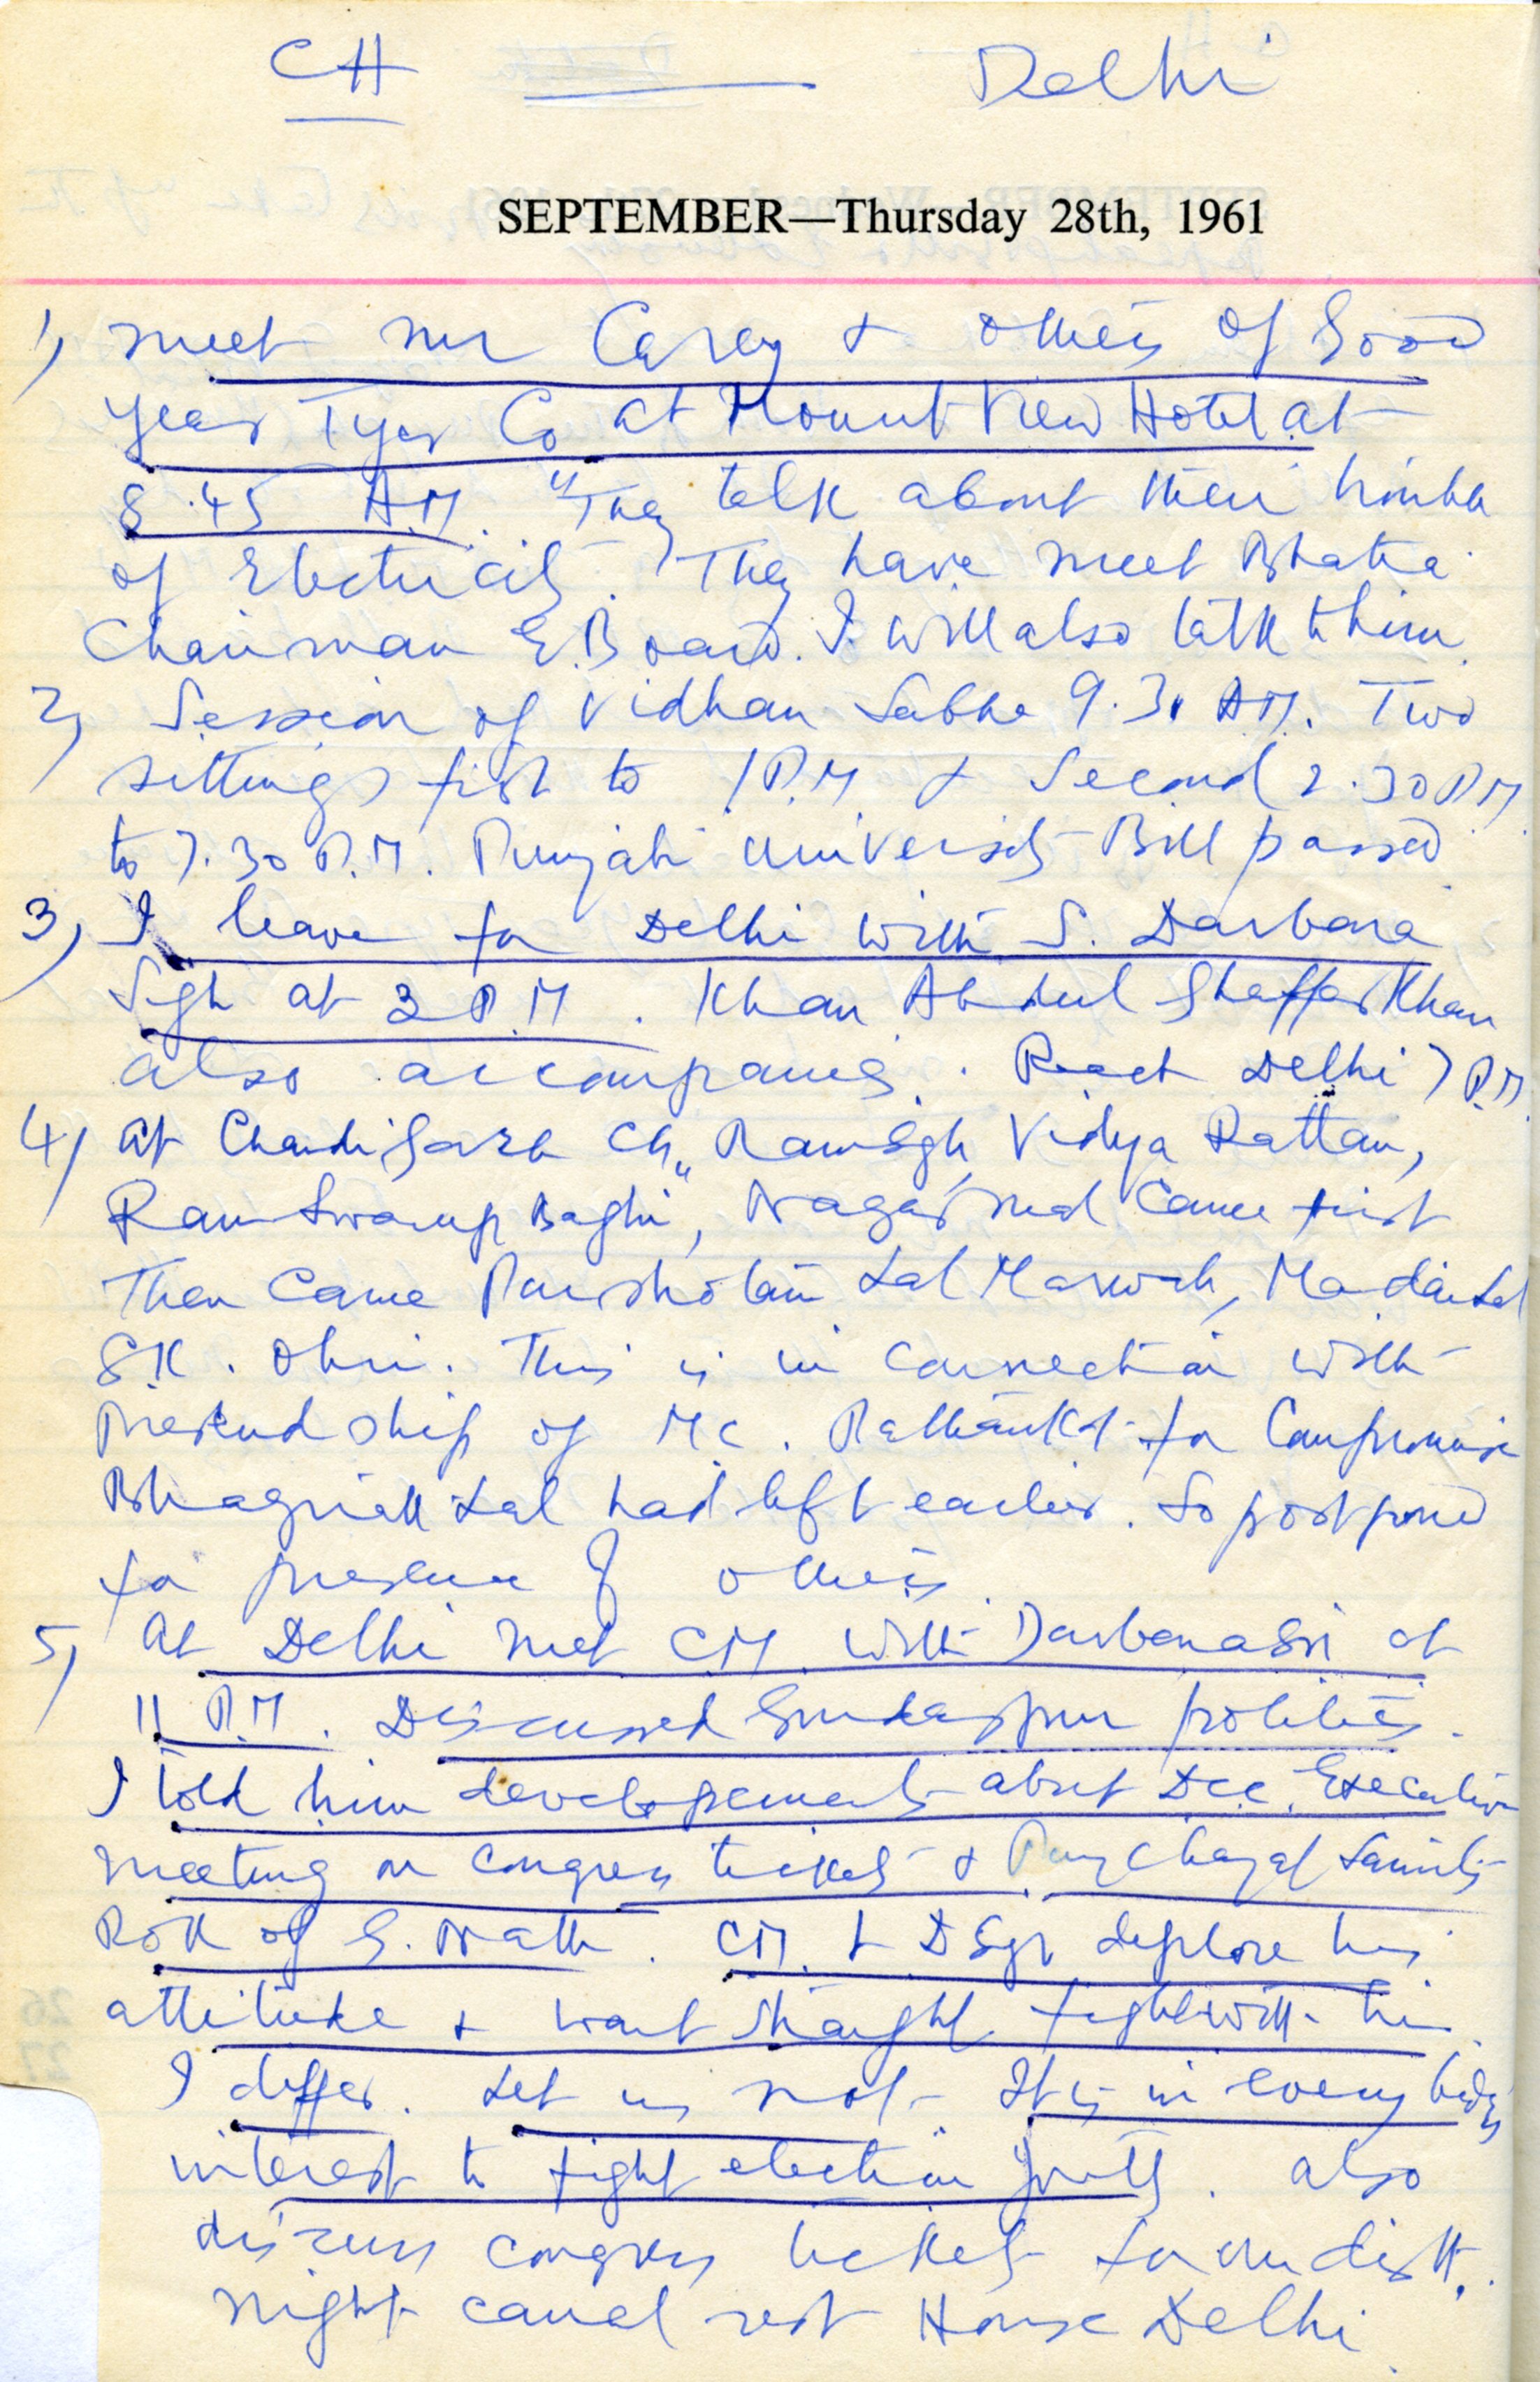 CH — Delhi
SEPTEMBER—Thursday 28th, 1961
1) meet Mr Carey & others of Good
year Tyer Co at Mount View Hotel at
8.45 A.M. They talk about their
of Electricity. They have meet Bhatia
Chairman E. Board. I will also talk to him.
2) Session of Vidhan Sabha 9.30 AM. Two
sittings first to 1 P.M & Second 2.30 P.M
to 7.30 P.M. Punjabi University Bill passed
3) I leave for Delhi with S. Darbara
Sgh at 3 P.M. Khan Abdul Ghaffar Khan
also accompanies. Reach Delhi 7 P.M.
4) At Chandigarh Ch. Ram Sgh, Vidya Rattan,
Ram Swarup Baghi, Nagar Mal came first
Then came Parshotam Lal Marwah, Madan Lal
S.K. Ohri. This is in connection with
Presendship of M.C. Pathankot for Compromise
Bhagnath Lal had left earlier. So postponed
for presence of others.
5) At Delhi met CM with Darbara Sgh at
11 P.M. Discussed Gurdaspur politics.
I told him developements about Dcc. Executive
meeting on congress tickets & Panchayat Samities
Roll of G. Nath. CM & D Sgh deplore his
attitude & want straight fight with him.
I differ. Let us not. It is in every bodys
interest to fight election jointly. Also
discuss congress tickets for our distt.
Night canal rest House Delhi